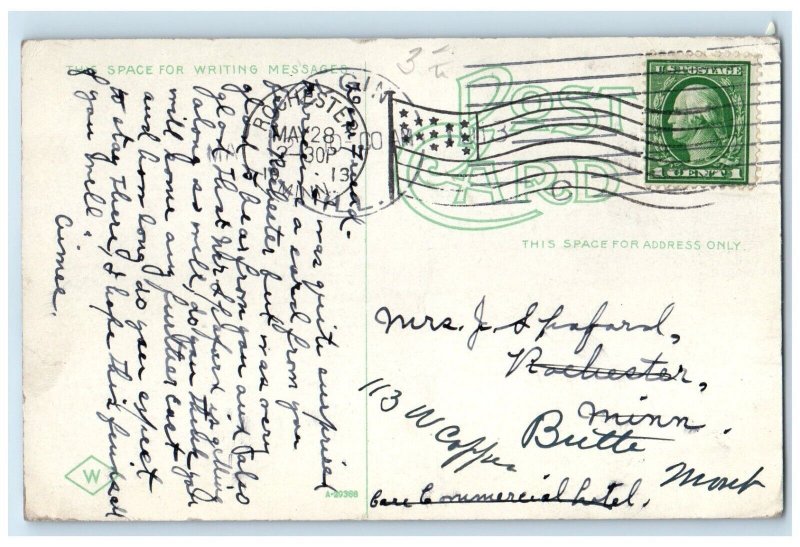 THIS SPACE FOR WRITING MESSAGES
POST CARD
THIS SPACE FOR ADDRESS ONLY.
U.S. POSTAGE
1 CENT 1
ROCHESTER
MAY 28
2-30P
13
MINN.
Dear Friend-
was quite surprised
a card from you
Rochester but was very
glad to hear from you and also
glad that Mr. Spafard is getting
along so well, do you think you
will come any further east
and how long do you expect
to stay there, I hope this finds all
of you well.
Aimee.
Mrs. J. Spafard,
Rochester,
Minn.
113 W Copper
Butte
Mont
Care Commercial Hotel.
W
A-29368